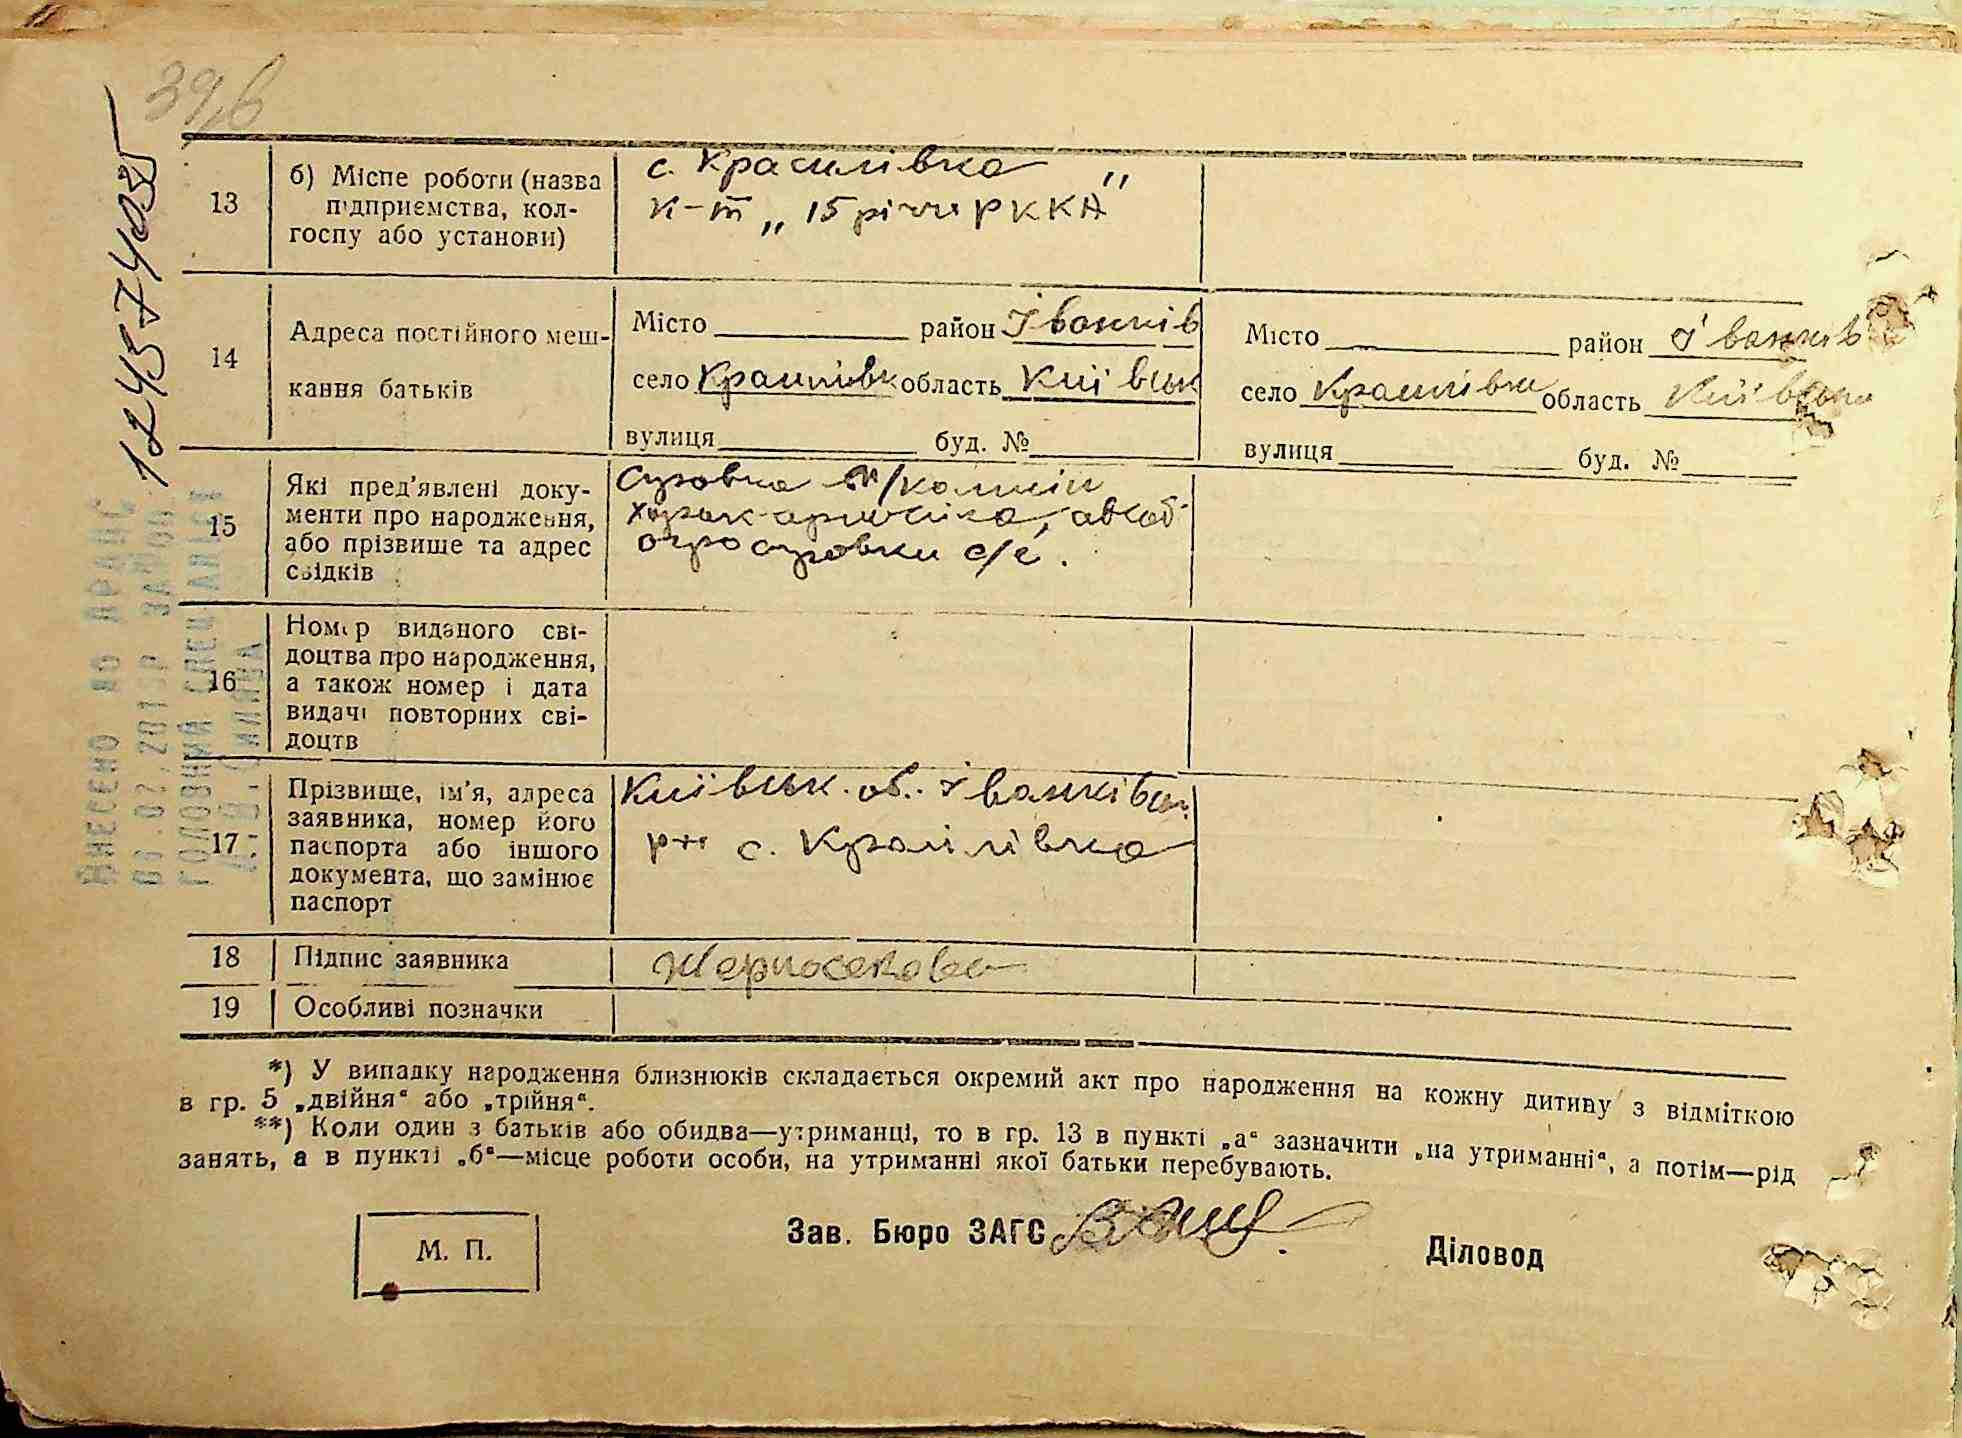 39б
1245 74035
ВНЕСЕНО ДО ДРАЦС
ГОЛОВНИЙ СПЕЦІАЛІСТ
13
б) Місце роботи (назва
підприємства, кол-
госпу або установи)
с. Красилівка
к-т „15 річчя РККА"
14
Адреса постійного меш-
кання батьків
Місто район Іванків
село Красилівк область Київськ
вулиця буд. №
Місто район Іванків
село Красилівка область Київська
вулиця буд. №
15
Які пред'явлені доку-
менти про народження,
або прізвише та адрес
свідків
с/с.
16
Номер виданого сві-
доцтва про народження,
а також номер і дата
видачі повторних сві-
доцтв
17
Прізвище, ім'я, адреса
заявника, номер його
паспорта або іншого
документа, що замінює
паспорт
Київськ. об. Іванківськ.
р-н с. Красилівка
18
Підпис заявника
19
Особливі позначки
*) У випадку народження близнюків складається окремий акт про народження на кожну дитину з відміткою
в гр. 5 „двійня“ або „трійня“.
**) Коли один з батьків або обидва—утриманці, то в гр. 13 в пункті „а“ зазначити „на утриманні“, а потім—рід
занять, а в пункті „б“—місце роботи особи, на утриманні якої батьки перебувають.
М. П.
Зав. Бюро ЗАГС
Діловод